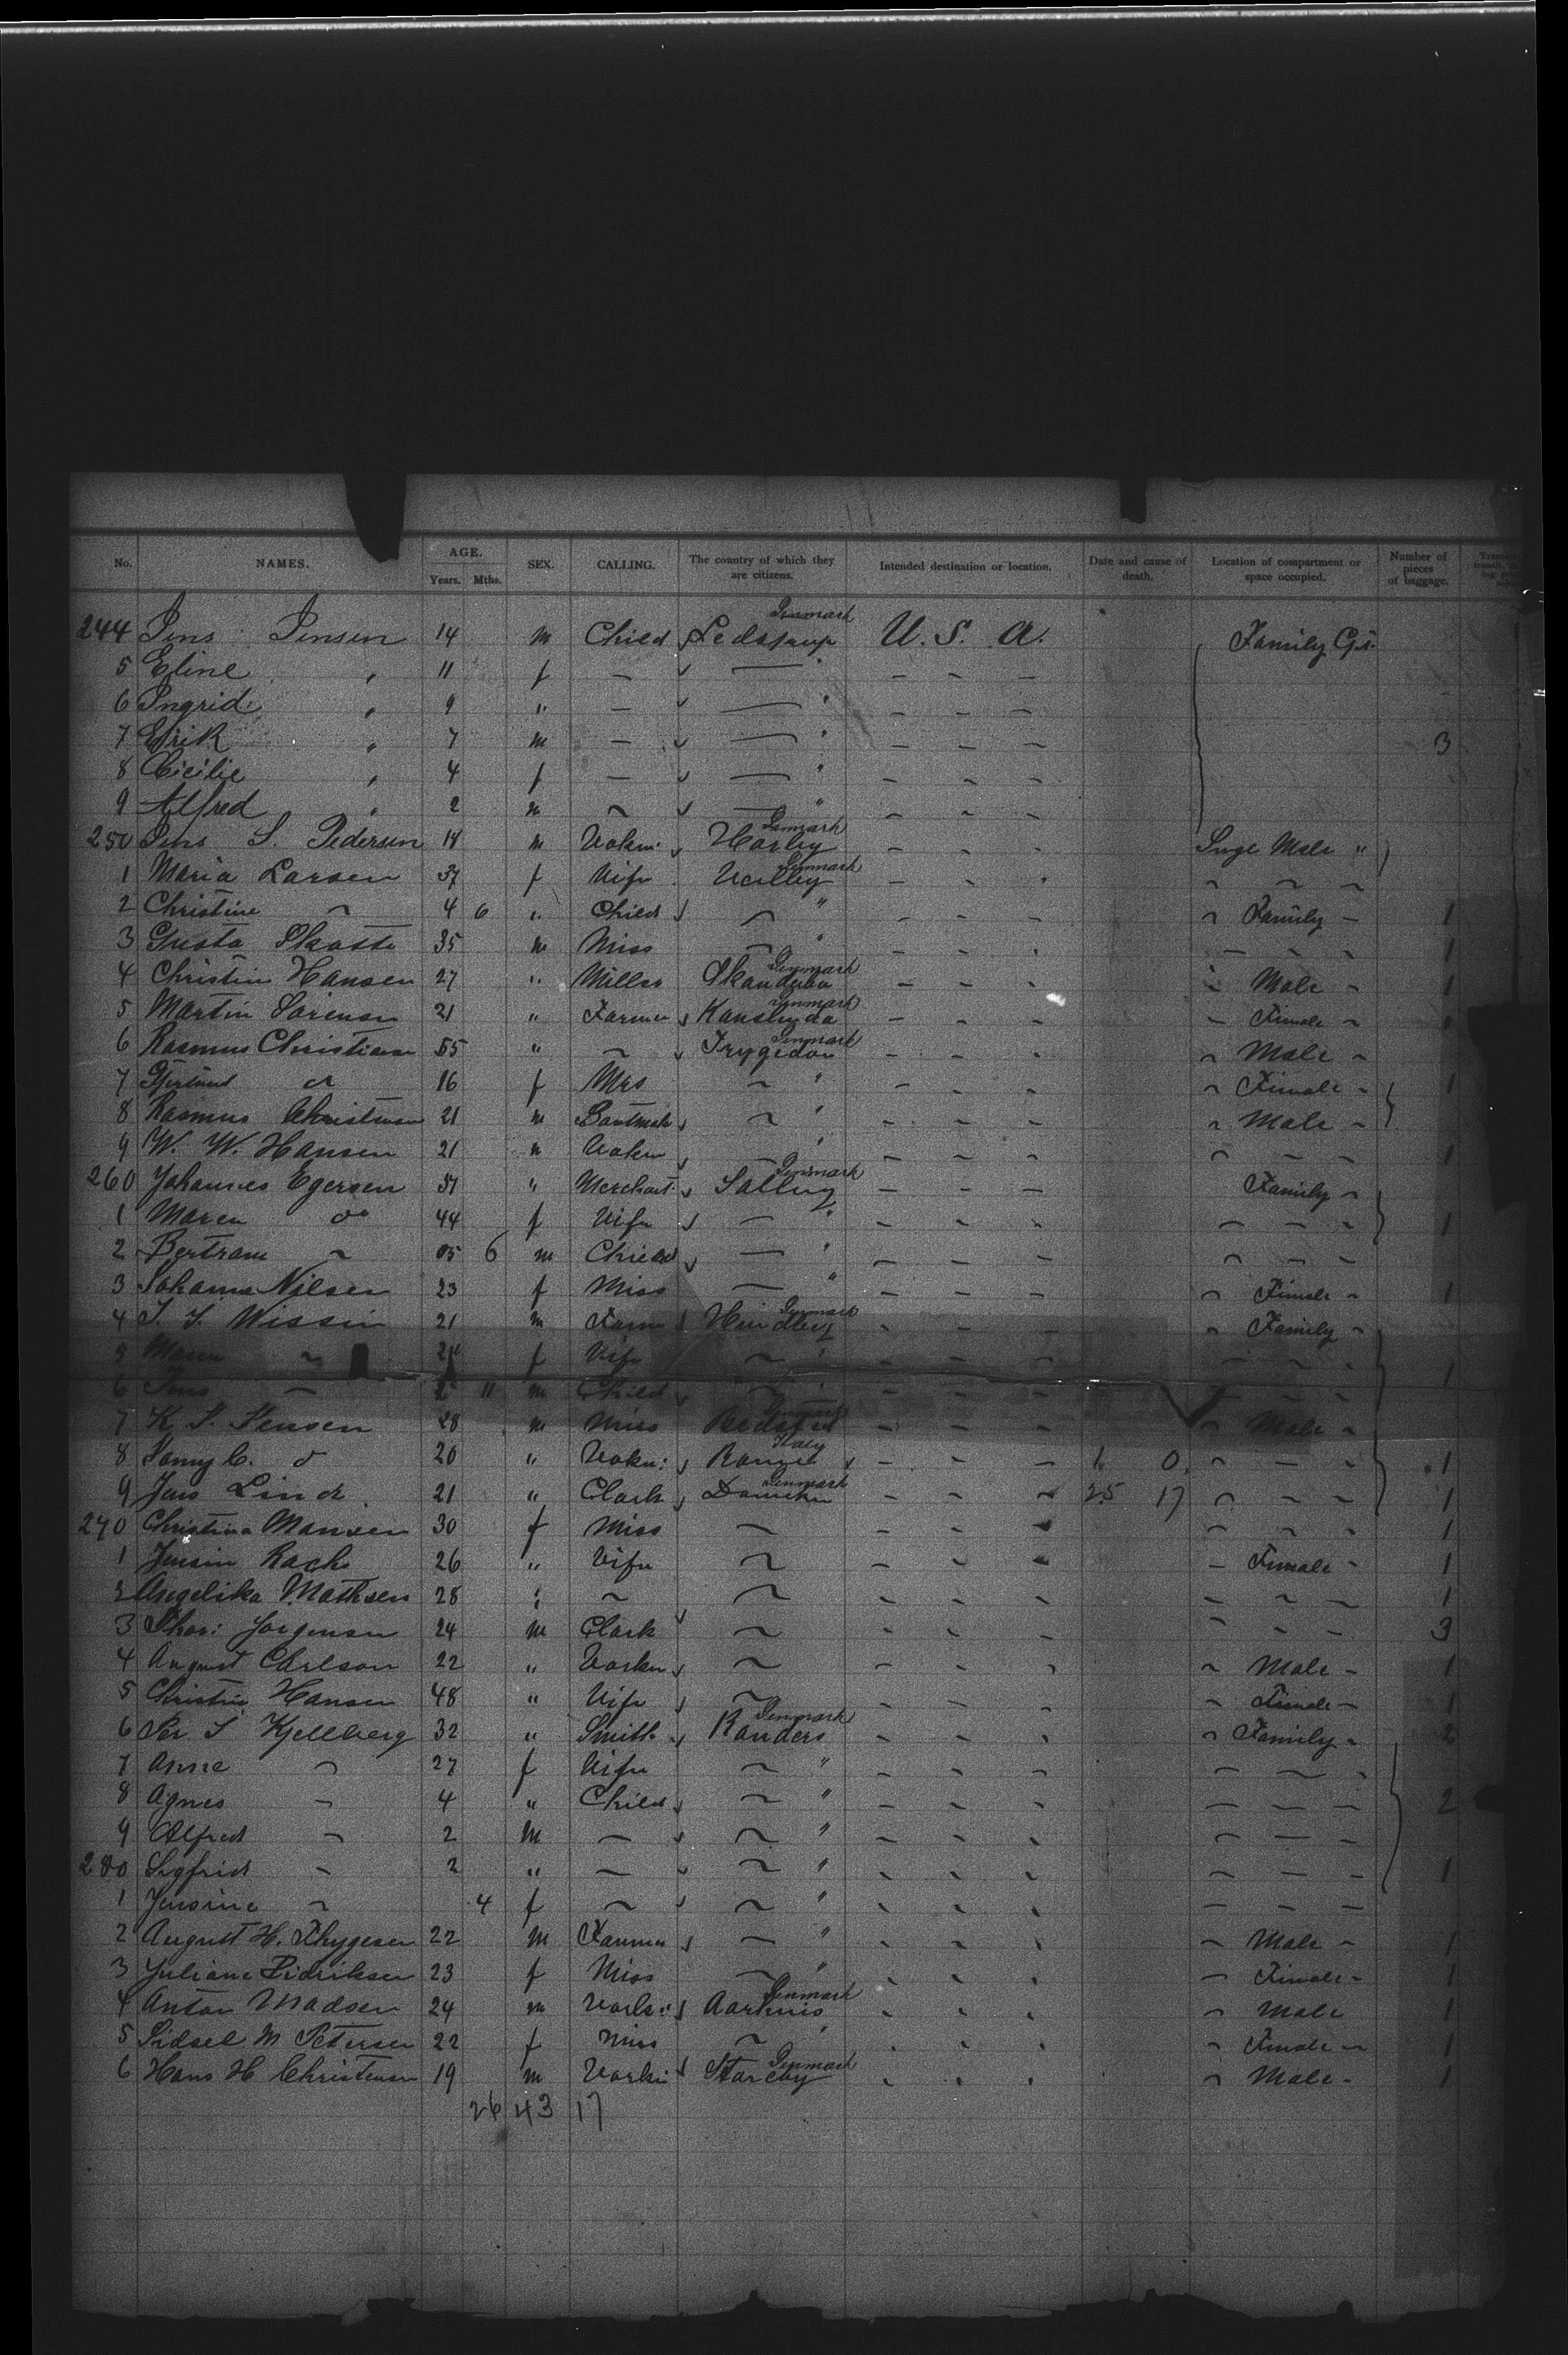 No. NAMES. AGE. Years. Mths. SEX. CALLING. The country of which they are citizens. Intended destination or location. Date and cause of death. Location of compartment or space occupied. Number of pieces of baggage.
244 Jens Jensen 14 m Child Denmark U. S. A. Family
5 Eline " 11 f — — " — — —
6 Ingrid " 9 " — — " — — —
7 Erik " 7 m — — " — — — 3
8 Cicilie " 4 f — — " — — —
9 Alfred " 2 m — — " — — —
250 Jens S. Pedersen 18 m Denmark Harley — — — Male "
1 Maria Larsen 37 f Wife Denmark — — — — — —
2 Christine — 4 6 " Child — " — — — — Family — 1
3 Gusta Skotte 35 m Miss — " — — — — — — 1
4 Christin Hansen 27 " Miller Denmark — — — Male — 1
5 Martin Sörensen 21 " Farmer Denmark — — — — Female —
6 Rasmus Christiansen 55 " — Denmark — — — — Male —
7 16 f Mrs — " — — — — Female — 1
8 Rasmus Christensen 21 m — " — — — — Male —
9 W. W. Hansen 21 " — " — — — — — — 1
260 Johannes Egersen 37 " Merchant Denmark Salling — — — Family —
1 Maren do 44 f Wife — " — — — — — — 1
2 Bertram — 6 m Child — " — — — — — —
3 Johanna Nilsen 23 f Miss — " — — — — Female — 1
4 Wissin 21 m Farm Denmark — — — — Family —
5 Maren — f Wife — " — — — — — — 1
6 Jens — 11 m Child — " — — — — — —
7 K. Jensen 28 m Miss Denmark — — — — Male —
8 20 " Italy — — — 1 0 — — — 1
9 Jens Lind 21 " Clark Denmark — — — 25 17 — — — 1
270 Christina Hansen 30 f Miss — — — — — — — 1
1 Jensin Rach 26 " Wife — — — — — Female — 1
2 Angelika Mathsen 28 " — — — — — — — — 1
3 Jorgensen 24 m Clark — — — — — — — 3
4 August Carlson 22 " — — — — — Male — 1
5 Christin Hansen 48 " Wife — — — — — Female — 1
6 Per S Kjellberg 32 " Smith Denmark Randers — — — — Family — 2
7 Anne — 27 f Wife — " — — — — — —
8 Agnes — 4 " Child — " — — — — — — 2
9 Alfred — 2 m — — " — — — — — —
280 Sigfrid — 2 " — — " — — — — — — 1
1 Jensine — 4 f — — " — — — — — —
2 August H. Thygesen 22 m Farmer — " — — — — Male — 1
3 Juliane Didriksen 23 f Miss — " — — — — Female — 1
4 Anton Madsen 24 m Denmark Aarhuis — — — — Male 1
5 Sidsel M Petersen 22 f Miss — " — — — — Female — 1
6 Hans H Christensen 19 m Denmark — — — — Male — 1
26 43 17